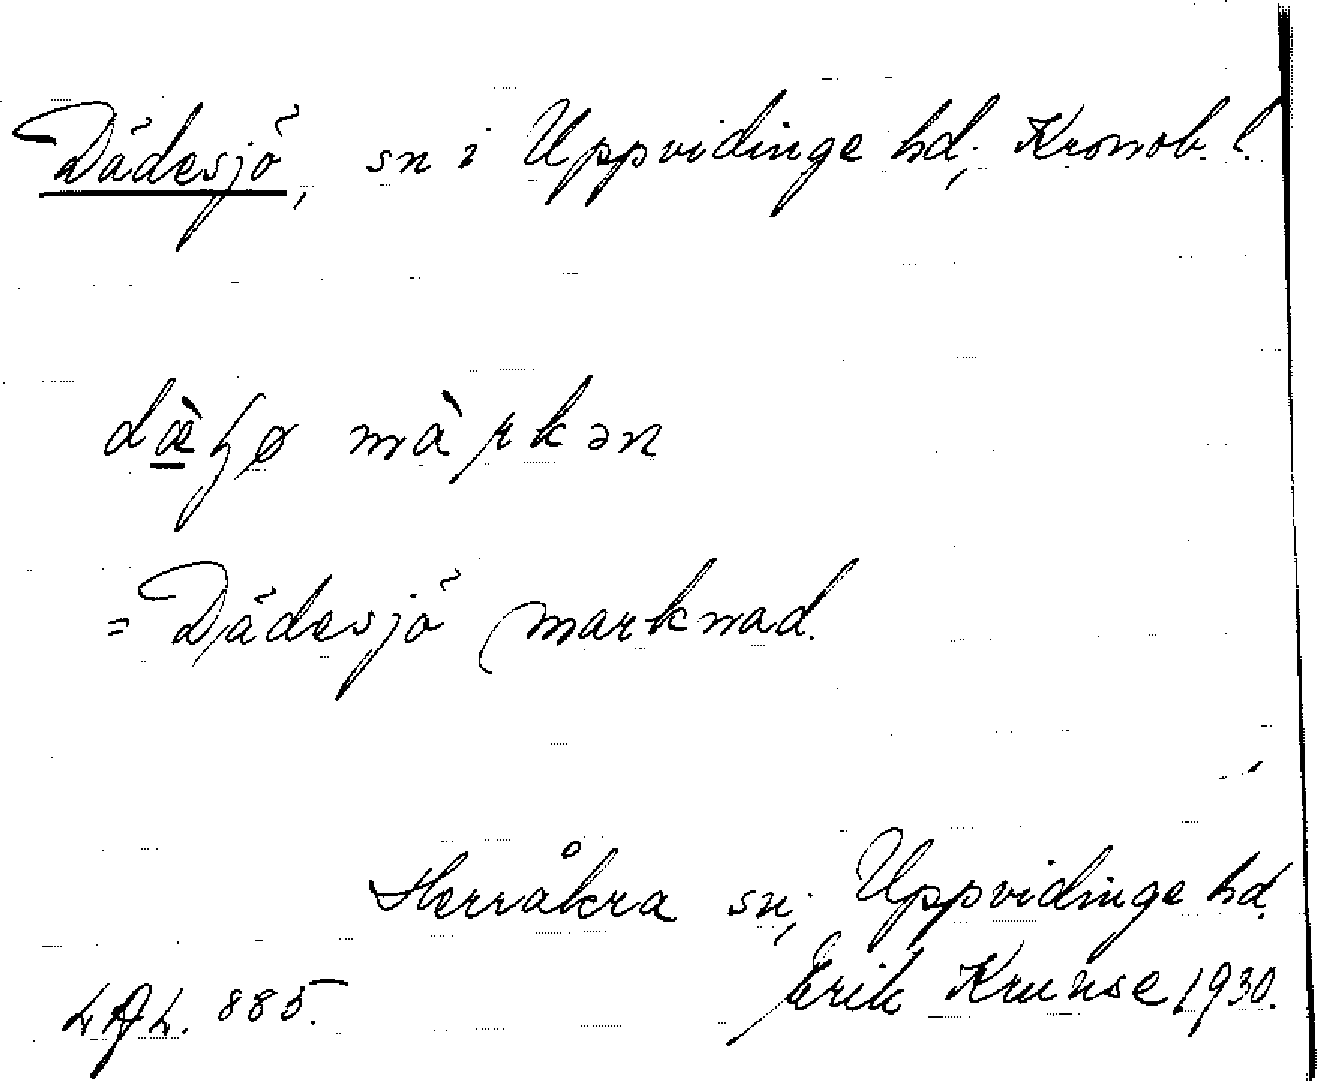 Dädesjö, sn i Uppvidinge hd; Kronob. l.
dæ̀ɧø màrkən
= Dädesjö marknad.
Herråkra sn; Uppvidinge hd.
Erik Krunse 1930.
LAL. 885.